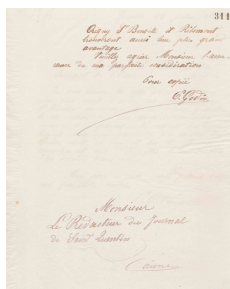 311
Origny St Benoite et Ribemont
trouveront aussi leur plus grand
avantage
Veuillez agréer Monsieur l'assu
rance de ma parfaite considération
Pour copie
Godin
Monsieur
Le Rédacteur du Journal
de Saint Quentin
Aisne